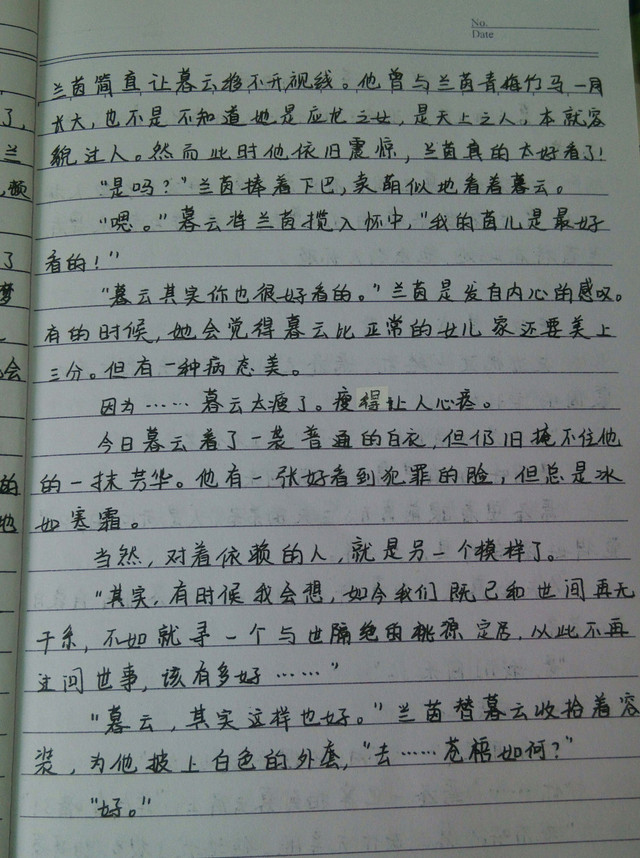 No.
Date
兰茵简直让暮云移不开视线。他曾与兰茵青梅竹马一同
了,
长大,也不是不知道她是应龙之女,是天上之人,本就容
兰
貌过人。然而此时他依旧震惊,兰茵真的太好看了!
“是吗?”兰茵捧着下巴,卖萌似地看着暮云。
“嗯。”暮云将兰茵揽入怀中,“我的茵儿是最好
了
看的!”
梦
“暮云其实你也很好看的。”兰茵是发自内心的感叹。
有的时候,她会觉得暮云比正常的女儿家还要美上
会
三分。但有一种病态美。
因为……暮云太瘦了。瘦得让人心疼。
今日暮云着了一袭普通的白衣,但仍旧掩不住他
的
的一抹芳华。他有一张好看到犯罪的脸,但总是冰
地
如寒霜。
当然,对着依赖的人,就是另一个模样了。
“其实,有时候我会想,如今我们既已和世间再无
干系,不如就寻一个与世隔绝的桃源定居,从此不再
过问世事,该有多好……”
“暮云,其实这样也好。”兰茵替暮云收拾着容
装,为他披上白色的外套,“去……苍梧如何?”
“好。”